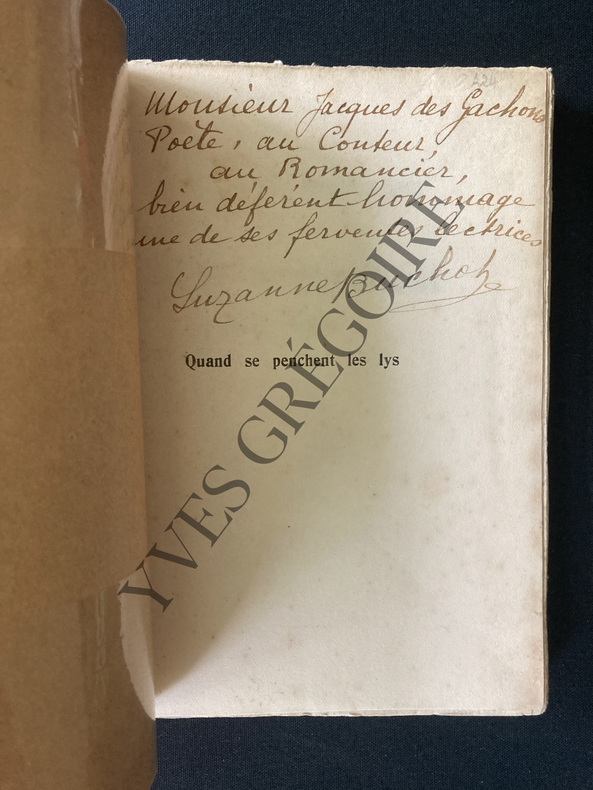 224
Monsieur Jacques des Gachons
Poète, au Conteur,
au Romancier,
bien déférent hommage
une de ses ferventes lectrices
Suzanne Buchot
Quand se penchent les lys
YVES GRÉGOIRE